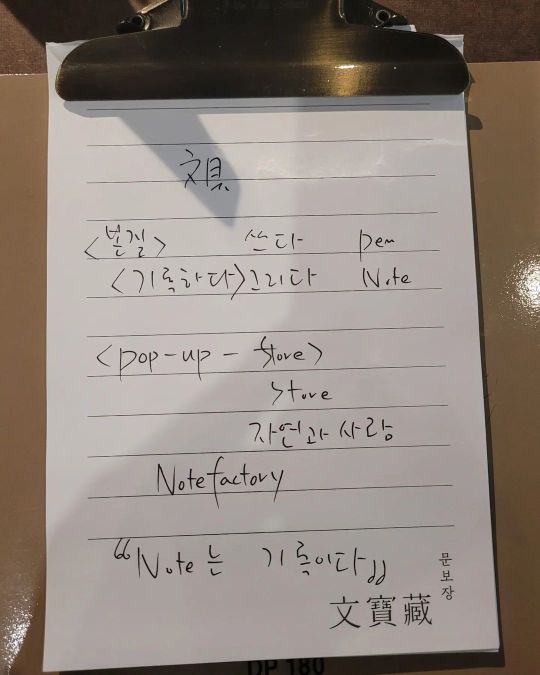 文具
<본질> 쓰다 pen
<기록하다> 그리다 Note
<pop-up - store>
store
자연과 사람
Notefactory
"Note는 기록이다"
문보장
文寶藏
DP 180